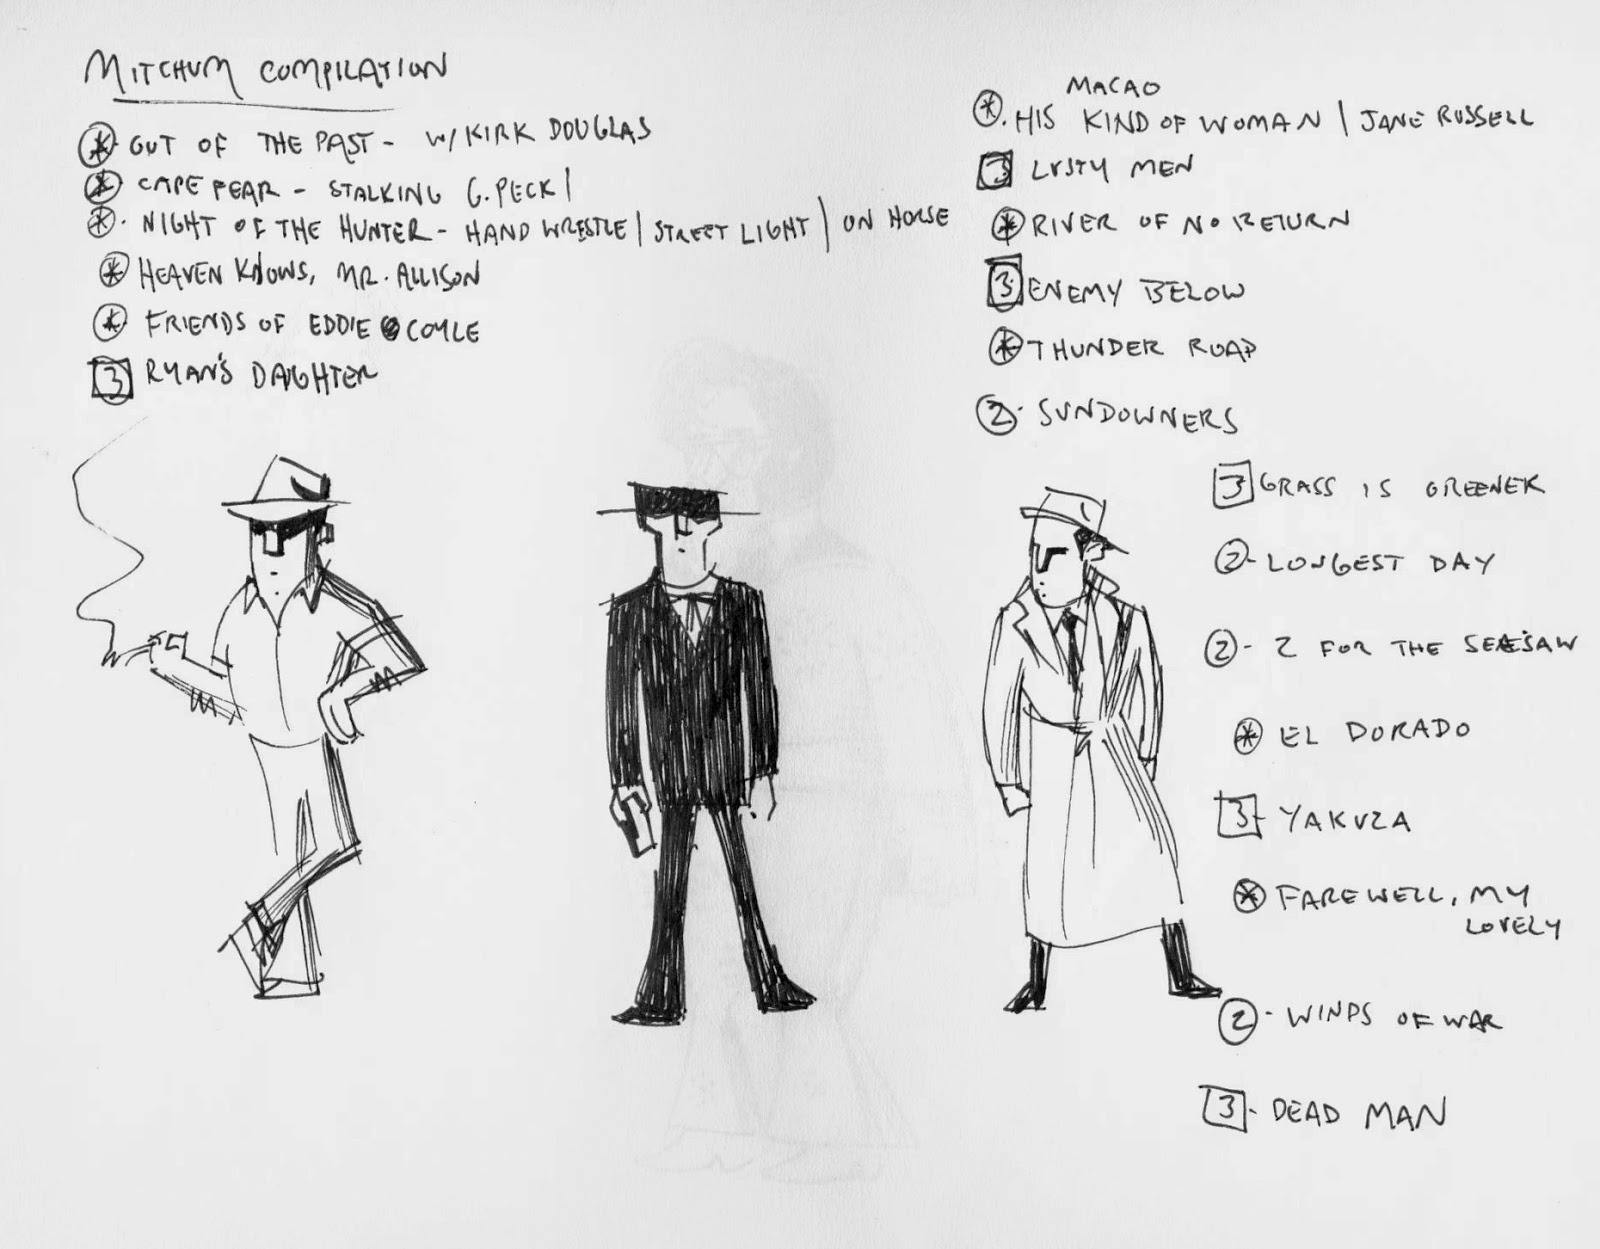 MITCHUM COMPILATION
* OUT OF THE PAST - W/ KIRK DOUGLAS
* CAPE FEAR - STALKING G. PECK |
* NIGHT OF THE HUNTER - HAND WRESTLE | STREET LIGHT | ON HORSE
* HEAVEN KNOWS, MR. ALLISON
* FRIENDS OF EDDIE COYLE
3 RYAN'S DAUGHTER
MACAO
* HIS KIND OF WOMAN | JANE RUSSELL
3 LUSTY MEN
* RIVER OF NO RETURN
3 ENEMY BELOW
* THUNDER ROAD
2 - SUNDOWNERS
3 GRASS IS GREENER
2 - LONGEST DAY
2 - 2 FOR THE SEESAW
* EL DORADO
3 - YAKUZA
* FAREWELL, MY
LOVELY
2 - WINDS OF WAR
3 - DEAD MAN